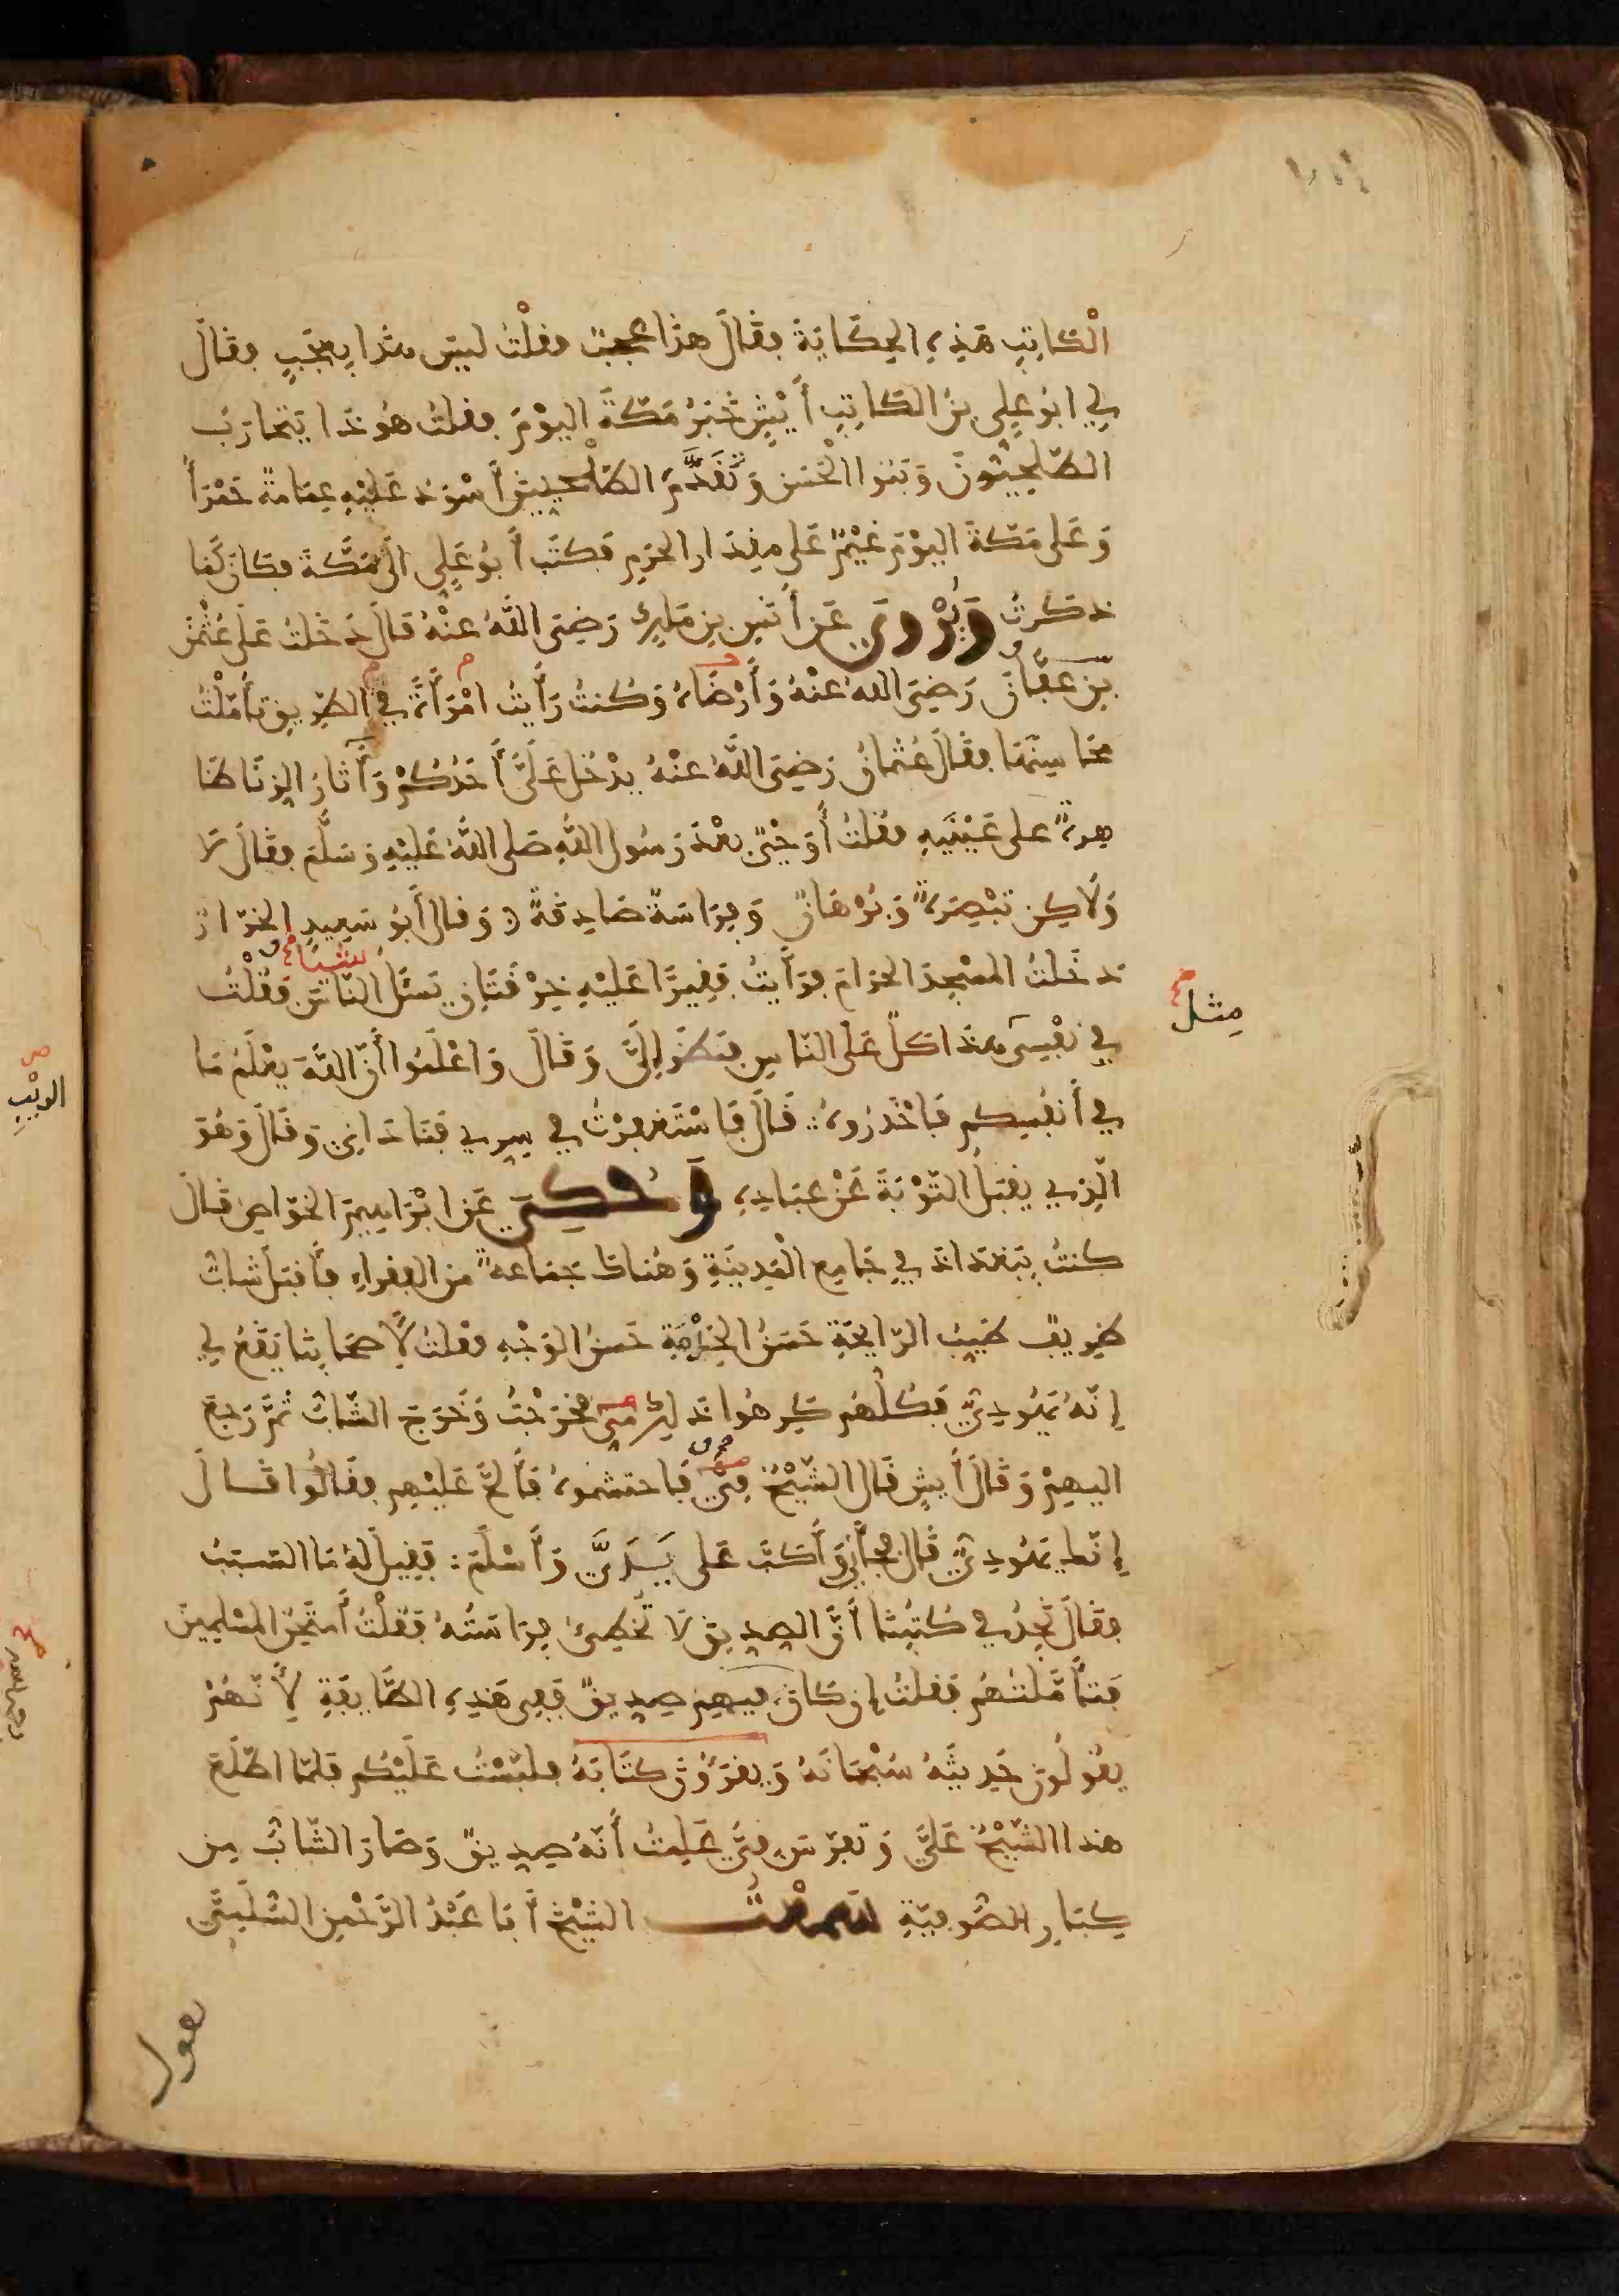 الْكاتِبِ هَذِهِ الحِكَايَةَ فقَالَ هذا عجبٌ فقلْتُ ليسَ هذا بِعَجَبٍ فقالَ
لِي ابُو علِي بنُ الكَاتِبِ أَيْشٍ خَبَرُ مَكّةَ اليوْمَ فقلتُ هُو ذَا يَتَحَارَبُ
الطّلْحِيُّونَ وَبَنُوا الْحَسَنِ وَتَقَدَّمَ الطّلْحيين أسْوَد عَلَيْهِ عِمَامَةٌ حَمْرَاُ
وَعَلى مَكّةَ اليوْمَ غَيْمٌ عَلى مِقدَار الحَرَمِ فَكتَبَ أَبُو عَلِي الَى مَكَّةَ فكَانَ كَمَا
ذكَرْتُ وَيُرْوَى عَن أَنَسِ بنِ مَلِكٍ رَضِيَ اللَّهُ عَنْهُ قَالَ دَخَلتُ عَلى عُثْمٰنَ
بنِ عَفّانَ رَضِيَ اللهُ عَنْهُ وَأَرْضَاهُ وَكُنتُ رَأَيْتُ امْرَأَةً فِي الطّرِيقِ تَأَمَّلْتُ
مَحَاسِنَهَا فقَالَ عُثمانُ رَضِيَ اللَّهُ عنْهُ يدْخُل عَلَىَّ أَحَدُكُمْ وَآثَارُ الزِنَا ظَا
هِرةٌ على عَيْنَيهِ فقلتُ أَوَحْيٌ بعْدَ رَسُولِ اللَّهِ صَلى اللَّهُ عَلَيْهِ وَسَلَّمَ فقَالَ لَا
وَلَاكِن تَبْصِرَةٌ وَبُرْهَانٌ وَفِرَاسَةٌ صَادِقةٌ وَقال أَبُو سَعِيدٍ الخرّازُ
دَخَلتُ المسْجِدَ الحَرَامَ فرَأَيتُ فقِيرًا عَلَيْهِ خِرْقَتَانِ يَسْئَلُ النّاسَ شيئا فَقلْتُ
مِثل
في نفْسِي هذا كَلٌّ عَلَى النّاسِ فنَظَرَ إِلَيَّ وَقَالَ وَاعْلَمُوا أَنَّ اللَّهَ يعْلَمُ مَا
فِي أَنفُسِكم فَاحْذَرُوهُ قَالَ فَاسْتَغفرْتُ فِي سِرِي فنَادَانِي وَقَالَ وَهُوَ
الَّذِي يقبَلُ التَّوْبَةَ عَنْ عِبَادِهِ وَحُكِيَ عَن ابْرَاهِيمَ الخوّاصِ قَالَ
كنتُ بِبَغدَادَ فِي جَامِعِ الْمَدِينَةِ وَهُنَاكَ جَمَاعةٌ من الفقراءِ فَأَقبَلَ شَابٌ
ظرِيفٌ طَيِّبُ الرّائِحَةِ حَسَنُ الحُرْمَةِ حَسَنُ الوَجْهِ فقلتُ لأَصحَابِنا يَقَعُ لِي
إِنّهُ يَهُودِيٌّ فَكُلُّهُم كَرِهُوا ذَلِكَ مني فخَرَجْتُ وَخَرَجَ الشّابُ ثُمَّ رَجَعَ
اليهِمْ وَقَالَ أَيشٍ قَالَ الشّيْخُ فِيَّ فَاحتشموهُ فَأَلَحَّ عَلَيْهِم فقَالُوا قَالَ
إِنّكَ يَهُودِيٌّ قَالَ فجَأَنِي وَأَكَبَّ عَلى يَدَيَّ وَأَسْلَمَ فقِيلَ لهُ مَا السَّبَبُ
فقَالَ نَجِدُ في كُتُبِنَا أَنَّ الصِدِيقَ لَا تُخطِئُ فِرَاسَتُهُ فقُلْتُ أَمتَحِنُ المسْلِمِينَ
فَتَأَمَّلتُهُم فقلتُ إِن كَانَ فيهِم صِدِيقٌ ففِي هَذِهِ الطَّائفَةِ لِأَنّهُمْ
يقُولُونَ حَدِيثَهُ سُبْحَانَهُ وَيقرَءُونَ كتَابَهُ فلبّسْتُ عَلَيْكُم فلمّا اطّلَعَ
هذا الشّيْخُ عَلَيَّ وَتفرّسَ فِيَّ عَلِمتُ أَنّهُ صِدِيقٌ وَصَارَ الشّابُ مِن
كِبَارِ الصُّوفِيّةِ سَمِعْتُ الشّيْخَ أَبَا عَبْدُ الرَّحْمٰنِ السُّلَمِيَّ
يقول